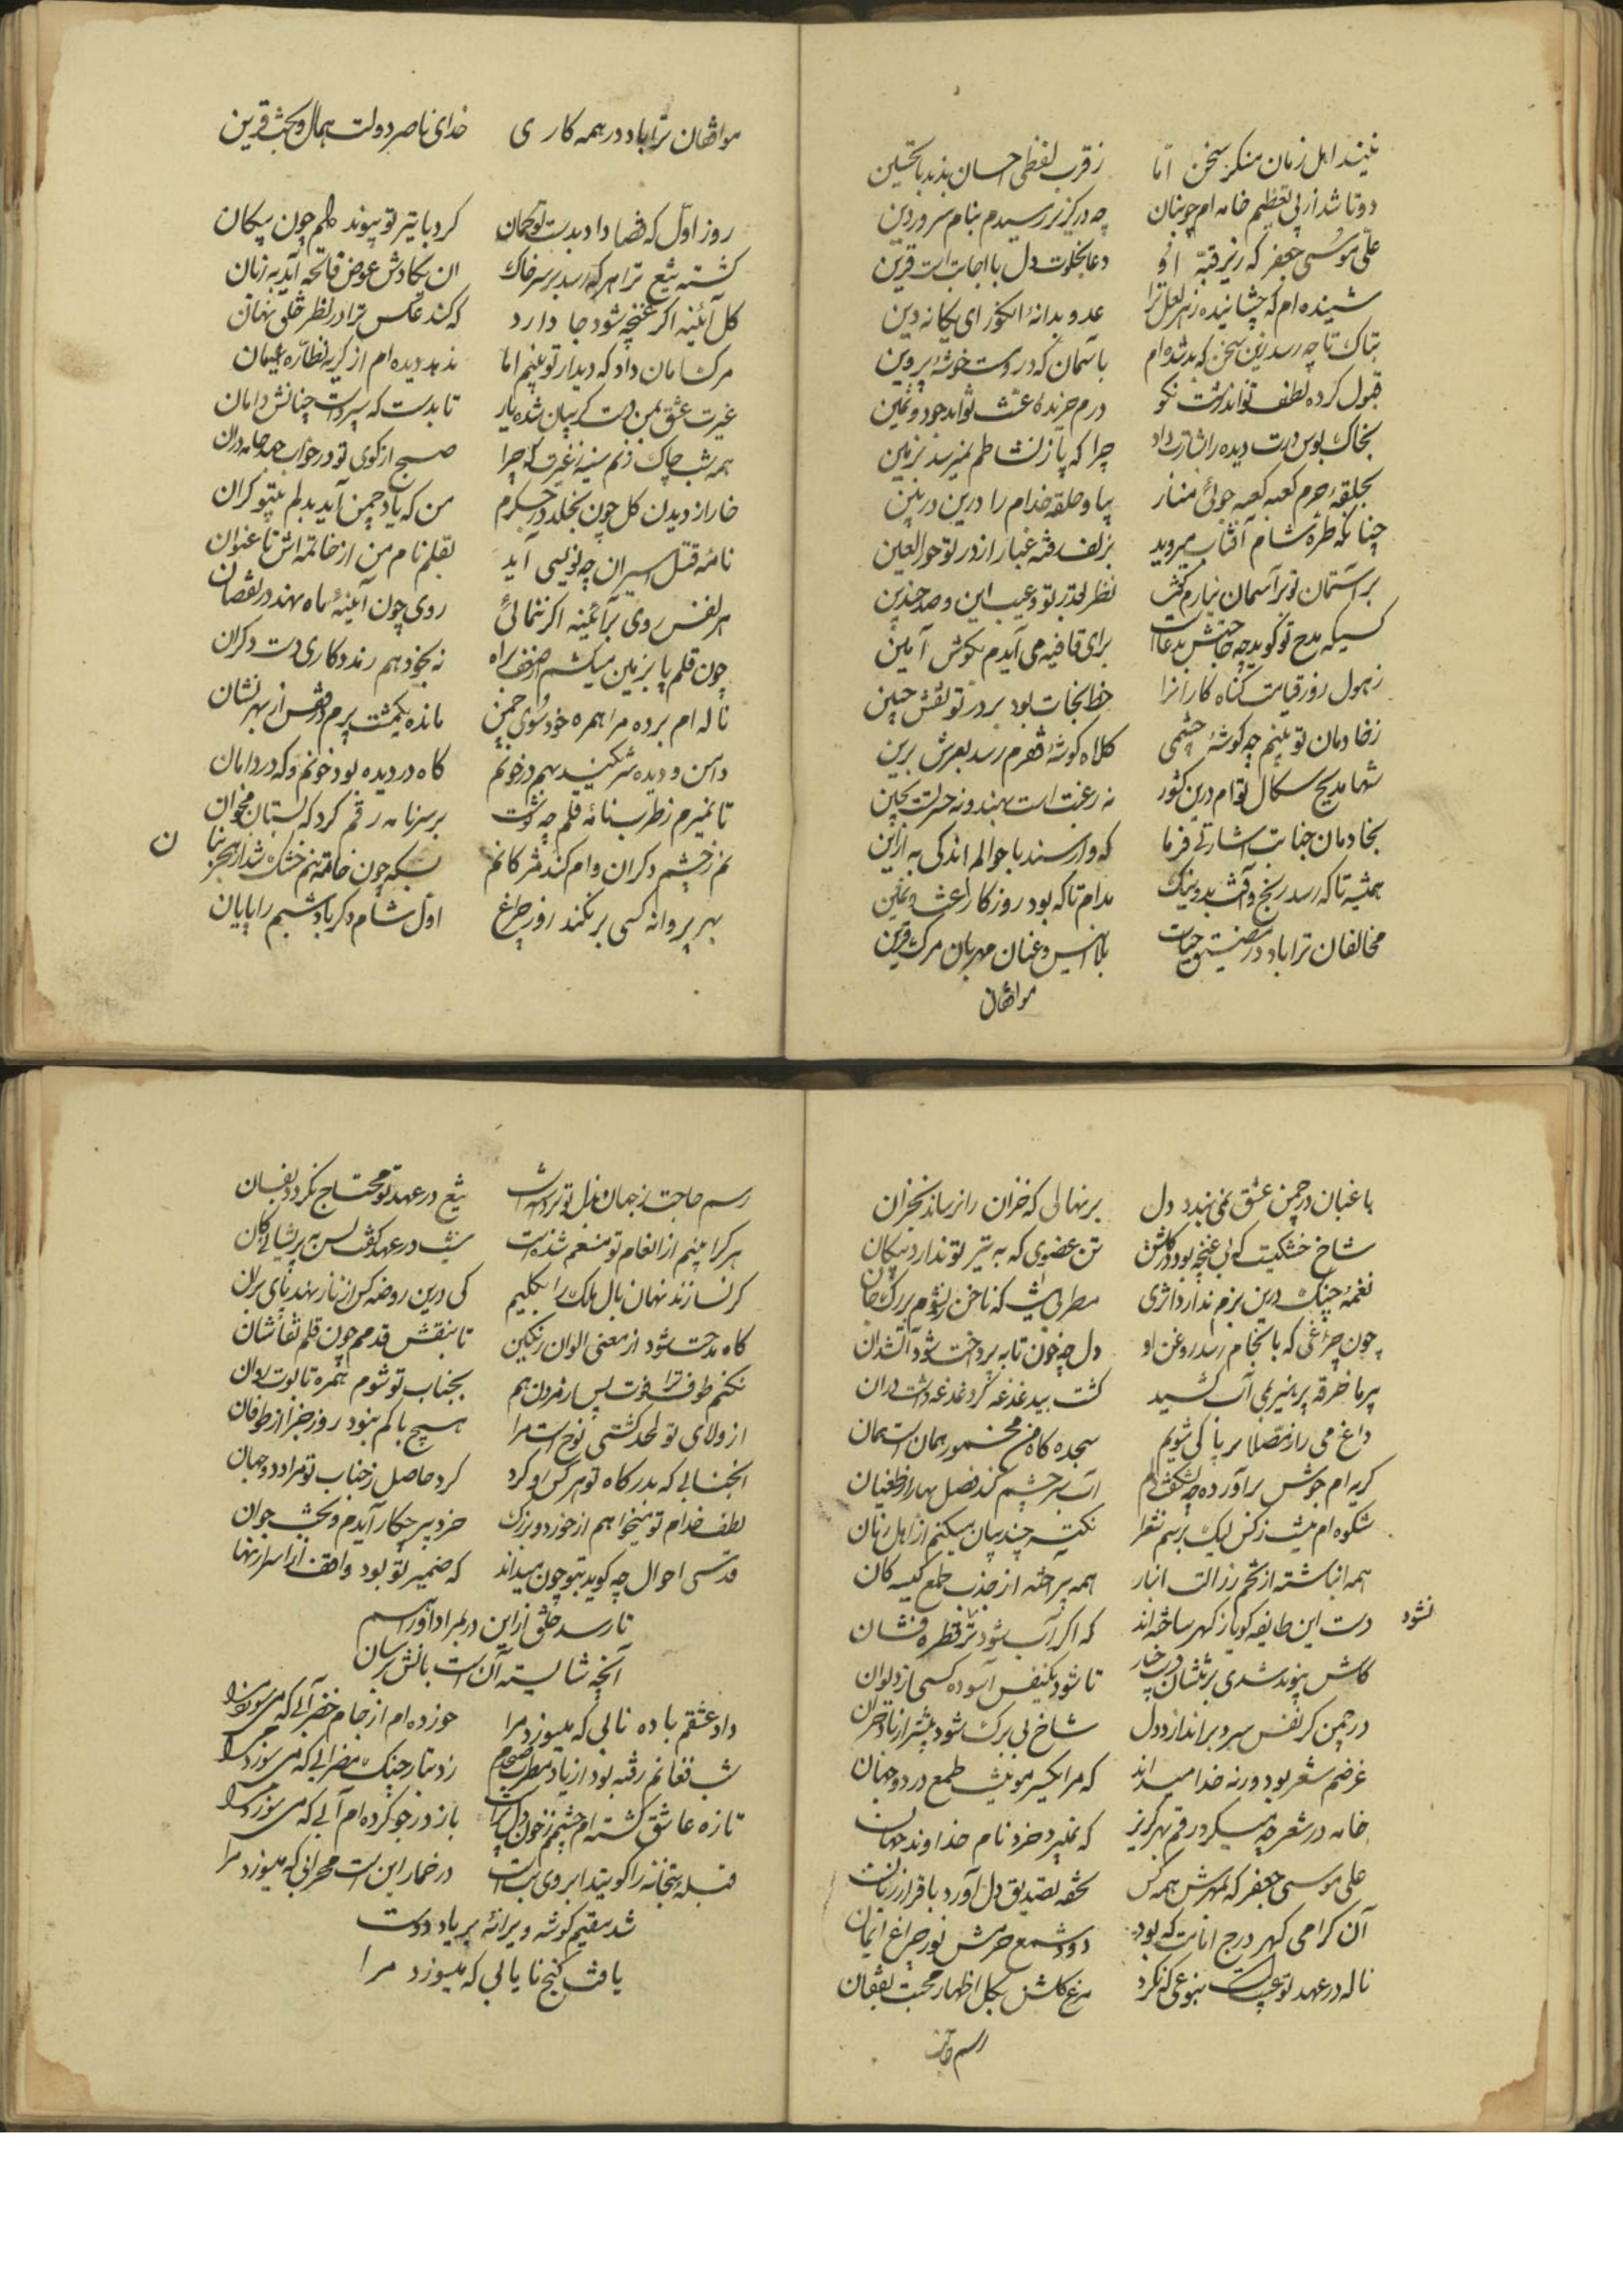 نیند اهل زمان منکر سخن اما    ز قرب لفظی احسان بذند با تحسین
دوتا شد از پی تعظیم خامه ام چو بنان    چه در کریز رسیدم بنام سرور دین
علی موسی جعفر که زیر قبه او    دعا بخلوت دل با اجابت است قرین
شنیده ام که چشانیده زهر لعل ترا    عدو بدانه انکور ای یکانه دین
بتاک تا چه رسد زین سخن که بد شده ام    بآسمان که دروست خوشه پروین
قبول کرده لطف تواند زشت نکو    درم خریده
بخاک بوس درت دیده را اشارت داد    چرا که پا ز نشاطم نمیرسد بزمین
بحلقه حرم کعبه کعبه جوئی مناز    بیا و حلقه خدام را درین در بین
چنانکه طره شام آفتاب میروبد    بزلف رفته غبار از در تو حور العین
بر آستان تو بر آسمان نیارم کفت    نظر بقدر تو و عیب این و صد چندین
کسیکه مدح تو کوید چه حاجتش بدعاست    برای قافیه می آیدم بکوش آمین
ز هول روز قیامت کناه کارانرا    خط نجات بود بر در تو نقش جبین
ز خادمان تو بینم چه کوشه چشمی    کلاه کوشه فخرم رسد بعرش برین
شها مدیح سکال توام درین کشور    نه رغبت است بهند و نه حسرت بچین
بخادمان جنابت اشارتی فرما    که وارسند باحوالم اندکی به ازین
همیشه تا که رسد رنج و آفت بد و نیک    مدام تا که بود روزکار
مخالفان ترا باد در مضیق حیات    بلا انیس و عنان مهربان مرک قرین
موافقان
موافقان ترا باد در همه کاری    خدای ناصر و دولت همال و بخت قرین
روز اول که قضا داد بدست تو کمان    کرد با تیر تو پیوند دلم چون پیکان
کشته تیغ ترا هر که رسد بر سر خاک    ان یکادش عوض فاتحه آید بزبان
کل آئینه اکر غنچه شود جا دارد    که کند عکس ترا در نظر خلق نهان
مرک امان داد که دیدار تو بینم اما    ندهد دیده ام از کریه نظاره امان
غیرت عشق بمن دست کریبان شده باز    تا بدست که سپرد است چنانش دامان
همه شب چاک زنم سینه ز غیرت که چرا    صبح از کوی تو در خواب جامه دران
خار از دیدن کل چون نخلد در جکرم    من که یاد چمن آید بدلم بیتو کران
نامه قتل اسیران چو نویسی آید    بقلم نام من از خاتمه اش تا عنوان
هر نفس روی بر آئینه اکر ننمائی    روی چون آئینه ماه نهد در نقصان
چون قلم پا بزمین میکشم از ضعف براه    نه بخود هم رود کاری دست دکران
ناله ام برده مرا همره خود سوی چمن    مانده یکمشت پرم در قفس از بهر نشان
دامن و دیده شریکند بهم در خونم    کاه در دیده بود خونم و که در دامان
تا نمیرم ز طرب نامه قلم چه نوشت    بر سر نامه رقم کرد که بستان و مخوان
نم ز چشم دکران وام کند مژکانم    بسکه چون خامه تنم خشک شد از هجر بنان
بهر پروانه کسی بر نکند روز چراغ    اول شام دکر باد شبم را پایان
باغبان در چمن عشق نمی بندد دل    بر نهالی که خزان را نرساند بخزان
شاخ خشکیست که بی غنچه بود در کلشن    تن عضوی که به تیر تو ندارد پیکان
نغمه چنک درین بزم ندارد اثری    مطربی نیست که ناخن زندم بر رک جان
چون چراغی که بانجام رسد روغن او    دل چو خون تابه پرداخت شود آتشدان
پیر ما خرقه پرهیز بمی آب کشید    کشت بید غدغه کر دغدغه داشت دران
داغ می را ز مصلا بریا کی شویم    سجده کاه من مخمور همان است همان
کریه ام جوش برآورده چه شکفت دلم    آب سرچشمه کند فصل بهاران طغیان
شکوه ام نیست ز کس لیک برسم شعرا    نکته چند بیان میکنم از اهل زمان
همه انباشته از تخم رذالت انبار    همه پرداخته از جذب طمع کیسه کان
دست این طایفه کویا ز کهر ساخته اند    که اکر آب شود تر نشود قطره فشان
کاش پیوند شدی    تا شود یکنفس آسوده کسی از دلوان
در چمن کر نفس سرد بر اندازد دل    شاخ بی برک شود پیشتر از باد خزان
غرضم شعر بود ورنه خدا میداند    که مرا یکسر مو نیست طمع در دو جهان
خامه در شعر چه میکرد رقم بهر کریز    که نمیبرد خرد نام خداوند جهان
علی موسی جعفر که بمهرش همه کس    تحفه تصدیق دل آورد باقرار زبان
آن کرامی کهر درج امانت که بود    دود شمع حرمش نور چراغ ایمان
ناله در عهد تو عیب است بنوعی که نکرد    مرغ کلشن بکل اظهار محبت بفغان
رسم حاجت
رسم حاجت ز جهان بذل تو برداشت    تیغ در عهد تو محتاج نکردد بفسان
هر کرا بینم از انعام تو منعم شده است    نیست در عهد کفت کس به پریشانی کان
کر نسازند نهان بال ملک را بکلیم    کی درین روضه کس از ناز نهد پای بران
کاه مدحت شود از معنی الوان رنکین    تا بنقش قدمم چون قلم نقاشان
نکنم طوف ترا فوت پس از مردن هم    بجناب تو شوم همره تابوت روان
از ولای تو لحد کشتی نوح است مرا    هیچ باکم نبود روز جزا از طوفان
آنجنابی که بدرکاه تو هر کس رو کرد    کرد حاصل ز جناب تو مراد دو جهان
لطف خدام تو میخواهم از خورد و بزرک    خرد پیر چکار آیدم و بخت جوان
قدسی احوال چه کوید بتو چون میداند    که ضمیر تو بود واقف از اسرار نهان
تا رسد خلق ازین در بمراد آور اسم
آنچه شایسته آن است بآنش برسان
داد عشقم باده نابی که میسوزد مرا    خورده ام از جام خضر آبی که می سوزد مرا
شب فغانم رفته بود از یاد مطرب صبحدم    زد بتار چنک مضرابی که می سوزد مرا
تازه عاشق کشته ام چشمم ز خون دل پر است    باز در جو کرده ام آبی که می سوزد مرا
قبله بتخانه را کویند ابروی بت است    در خمار این است محرابی که میسوزد مرا
شد مقیم کوشه ویرانه بر یاد دوست
یافت کنج نایابی که میسوزد مرا